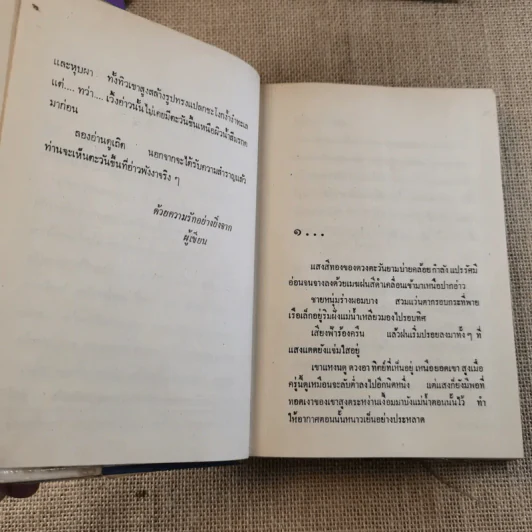 และหุบผา ทั้งทิวเขาสูงสล้างรูปทรงแปลกชะโงกง้ำชำทะเล
แต่.... ทว่า.... เวิ้งอ่าวนั้นไม่เคยมีตะวันขึ้นเหนือผิวน้ำสีมรกต
มาก่อน
ลองอ่านดูเถิด นอกจากจะได้รับความสำราญแล้ว
ท่านจะเห็นตะวันขึ้นที่อ่าวพังงาจริง ๆ
ด้วยความรักอย่างยิ่งจาก
ผู้เขียน
๑...
แสงสีทองของดวงตะวันยามบ่ายคล้อย กำลัง แปรรัศมี
อ่อนจนจางลงด้วยเมฆฝนสีดำเคลื่อนเข้ามาเหนือปากอ่าว
ชายหนุ่มร่างผอมบาง สวมแว่นตากรอบกระที่พาย
เรือเล็กอยู่ริมฝั่งแม่น้ำเหลียวมองไปรอบทิศ
เสียงฟ้าร้องครืน แล้วฝนเริ่มปรอยลงมาทั้ง ๆ ที่
แสงแดดยังแจ่มใสอยู่
เขาแหงนดู ดวงอาทิตย์ที่เห็นอยู่ เหนือยอดเขา สูงเมื่อ
ครู่นี้ดูเหมือนจะลับต่ำลงไปอีกนิดหนึ่ง แต่แสงก็ยังมีพอที่
ทอดเงาของเขาสูงตระหง่านเงื้อมมาบังแม่น้ำตอนนั้นไว้ ทำ
ให้อากาศตอนนั้นหนาวเย็นอย่างประหลาด